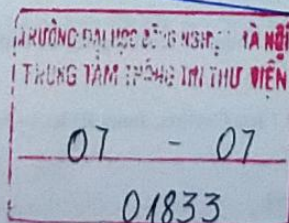 TRƯỜNG ĐẠI HỌC CÔNG NGHIỆP HÀ NỘI
TRUNG TÂM THÔNG TIN THƯ VIỆN
07 - 07
01833